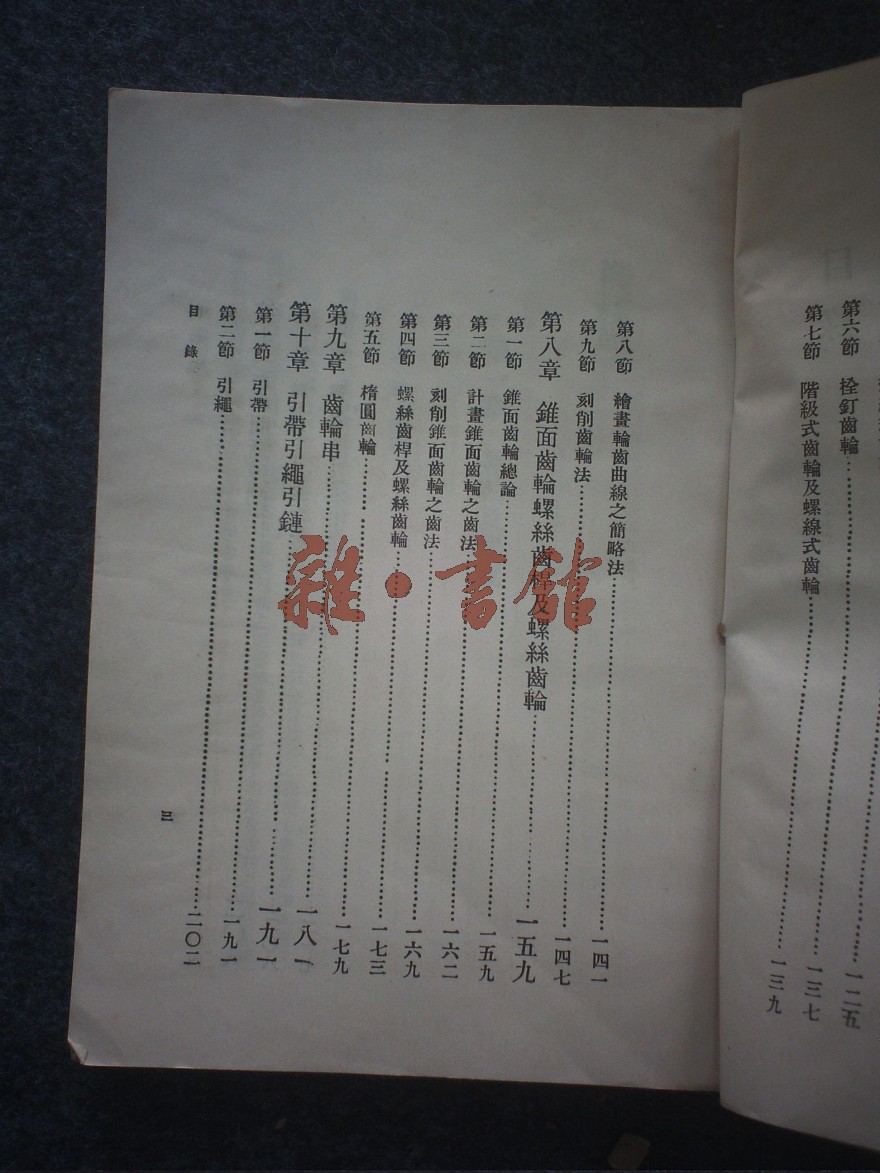 一二五
第六節 栓釘齒輪……一三七
第七節 階級式齒輪及螺線式齒輪……一三九
第八節 繪畫輪齒曲線之簡略法……一四一
第九節 刻削齒輪法……一四七
第八章 錐面齒輪螺絲齒桿及螺絲齒輪……一五九
第一節 錐面齒輪總論……一五九
第二節 計畫錐面齒輪之齒法……一六二
第三節 刻削錐面齒輪之齒法……一六九
第四節 螺絲齒桿及螺絲齒輪……一七三
第五節 橢圓齒輪……一七九
第九章 齒輪串……一八一
第十章 引帶引繩引鏈……一九一
第一節 引帶……一九一
第二節 引繩……二〇二
目錄
三
雜·書館